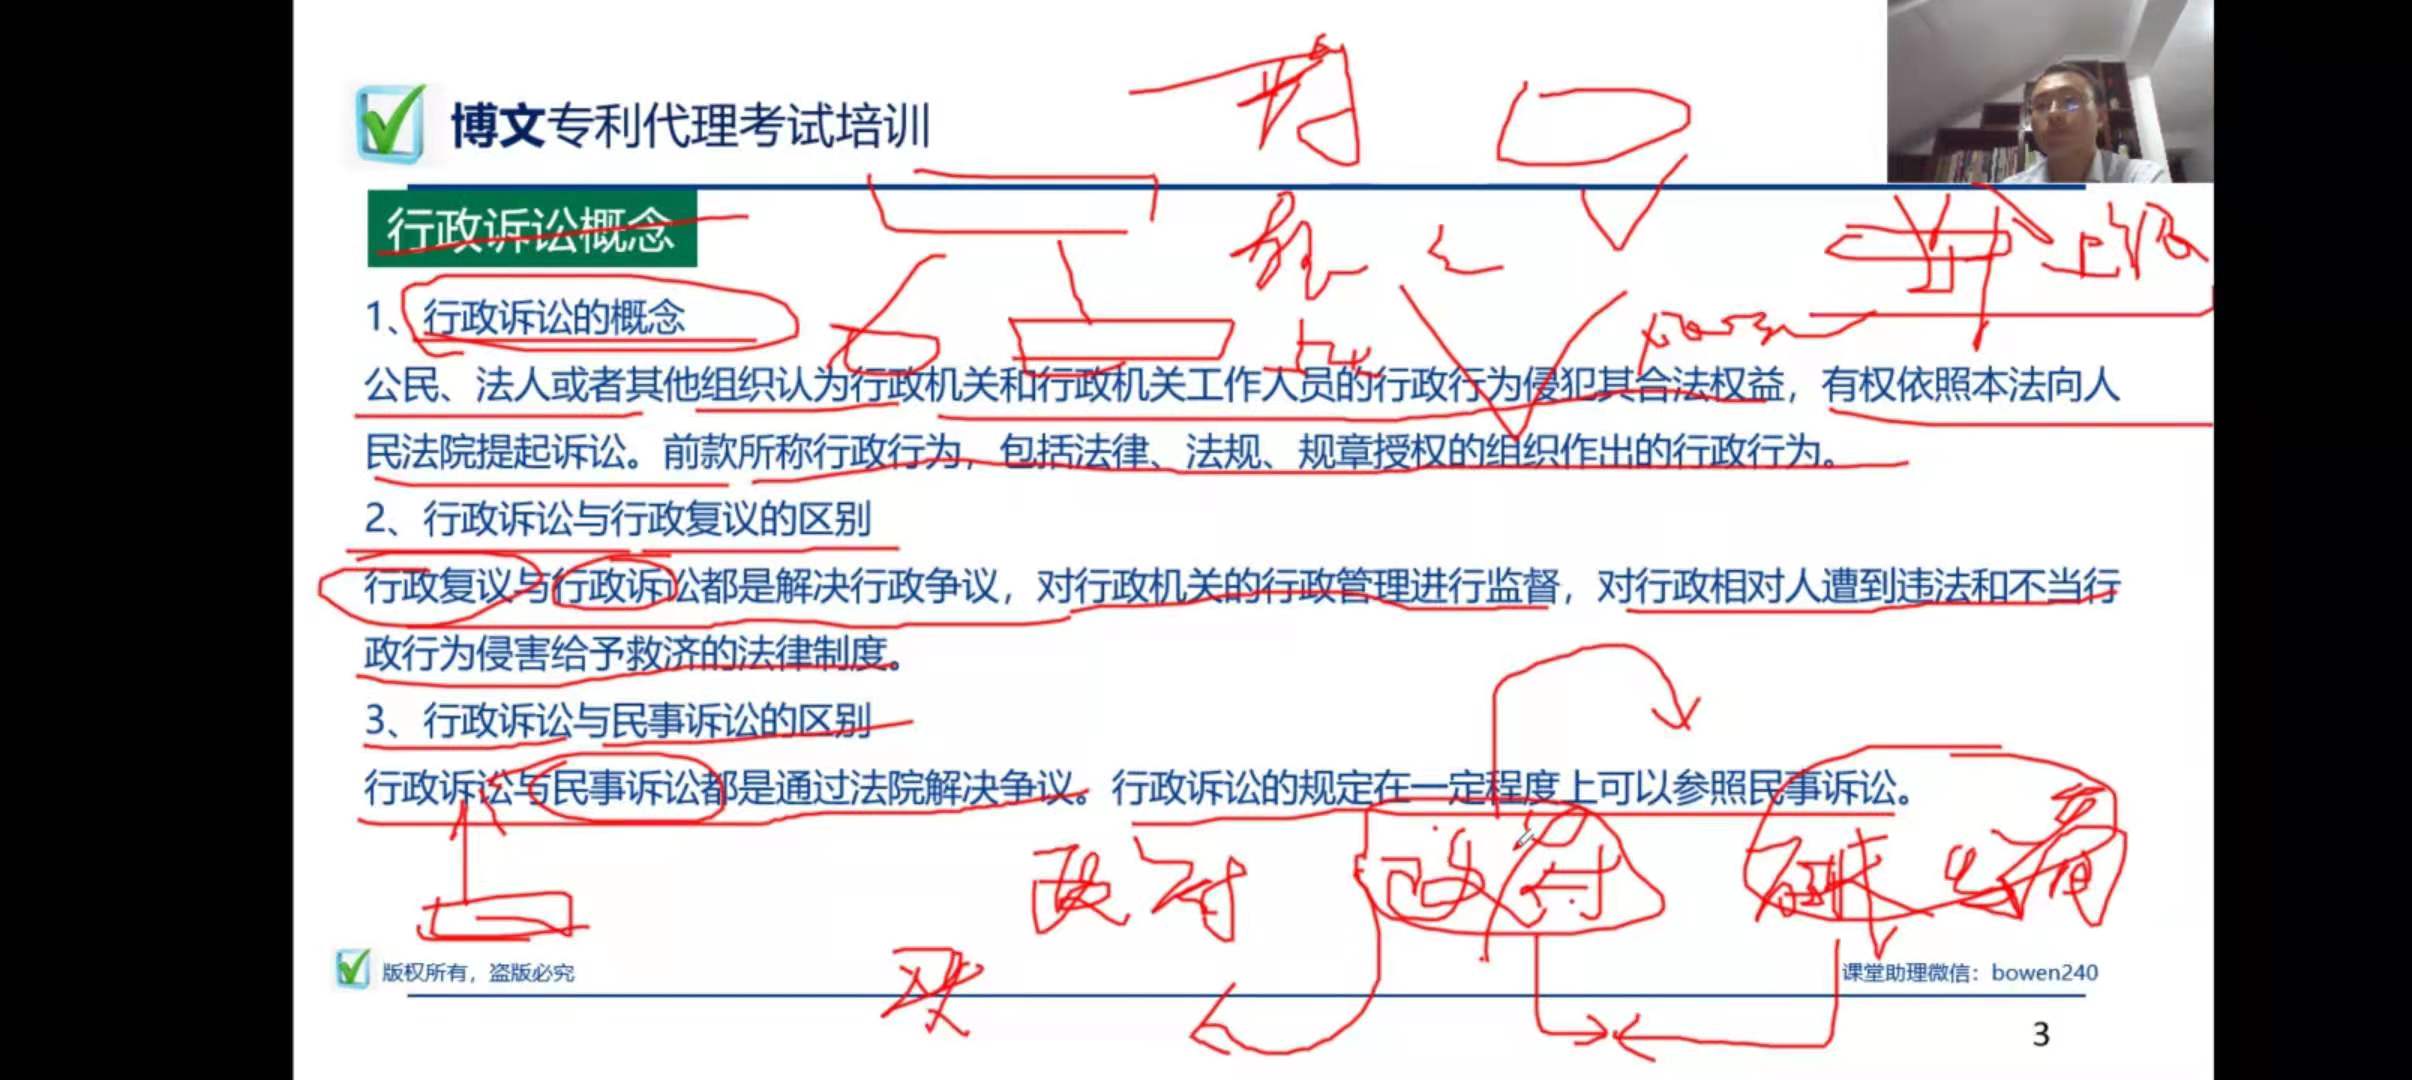 博文专利代理考试培训
行政诉讼概念
1、行政诉讼的概念
公民、法人或者其他组织认为行政机关和行政机关工作人员的行政行为侵犯其合法权益，有权依照本法向人
民法院提起诉讼。前款所称行政行为，包括法律、法规、规章授权的组织作出的行政行为。
2、行政诉讼与行政复议的区别
行政复议与行政诉讼都是解决行政争议，对行政机关的行政管理进行监督，对行政相对人遭到违法和不当行
政行为侵害给予救济的法律制度。
3、行政诉讼与民事诉讼的区别
行政诉讼与民事诉讼都是通过法院解决争议。行政诉讼的规定在一定程度上可以参照民事诉讼。
版权所有，盗版必究
课堂助理微信：bowen240
3